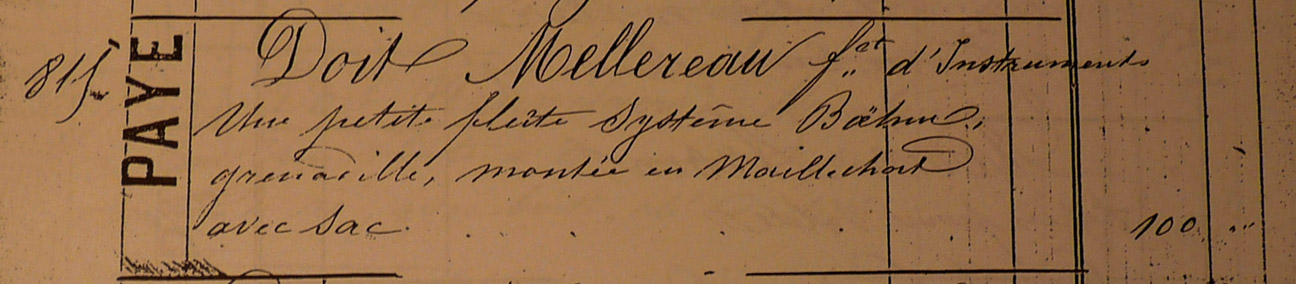 815
PAYÉ
Doit Mellereau f.ct d'Instruments
Une petite flûte système Bœhm,
grenadille, montée en Maillechort
avec sac. 100 "